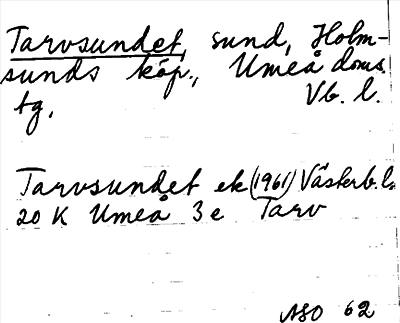 Tarvsundet, sund, Holm-
sunds köp., Umeå doms.
tg. Vb. l.
Tarvsundet ek (1961) Västerb. l.
20 K Umeå 3e Tarv
ASO 62